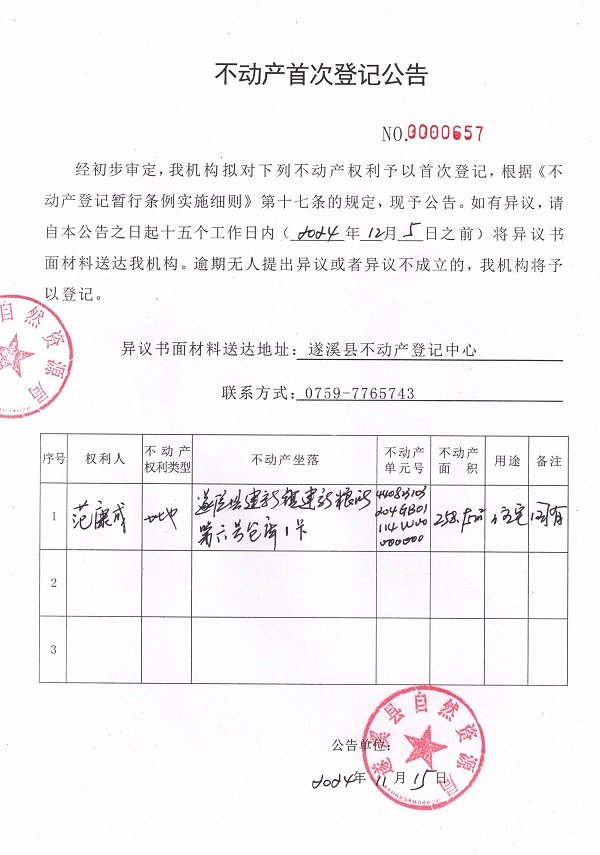 不动产首次登记公告
NO.0000657
经初步审定，我机构拟对下列不动产权利予以首次登记，根据《不
动产登记暂行条例实施细则》第十七条的规定，现予公告。如有异议，请
自本公告之日起十五个工作日内（2024年12月5日之前）将异议书
面材料送达我机构。逾期无人提出异议或者异议不成立的，我机构将予
以登记。
自然资源局
异议书面材料送达地址：遂溪县不动产登记中心
联系方式：0759-7765743
序号 权利人 不动产权利类型 不动产坐落 不动产单元号 不动产面积 用途 备注
1 范康成 土地 遂溪县建新镇建新粮所 440823103
第六号仓库1卡 204GB01 258.15㎡ 住宅 国有
114W00
000000
2
3
遂溪县自然资源局
公告单位：
2024年11月15日